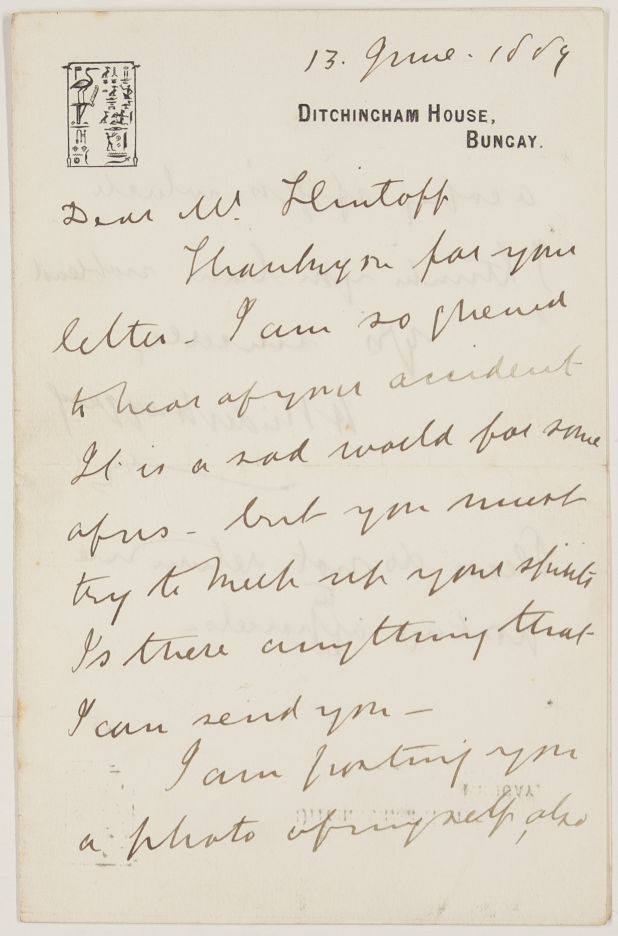 13. June. 1889
DITCHINGHAM HOUSE,
BUNGAY.
Dear Mr. Hintoff
Thank you for your
letter - I am so grieved
to hear of your accident
It is a sad world for some
of us - but you must
try to keep up your spirits
Is there anything that
I can send you -
I am posting you
a photo of myself, also